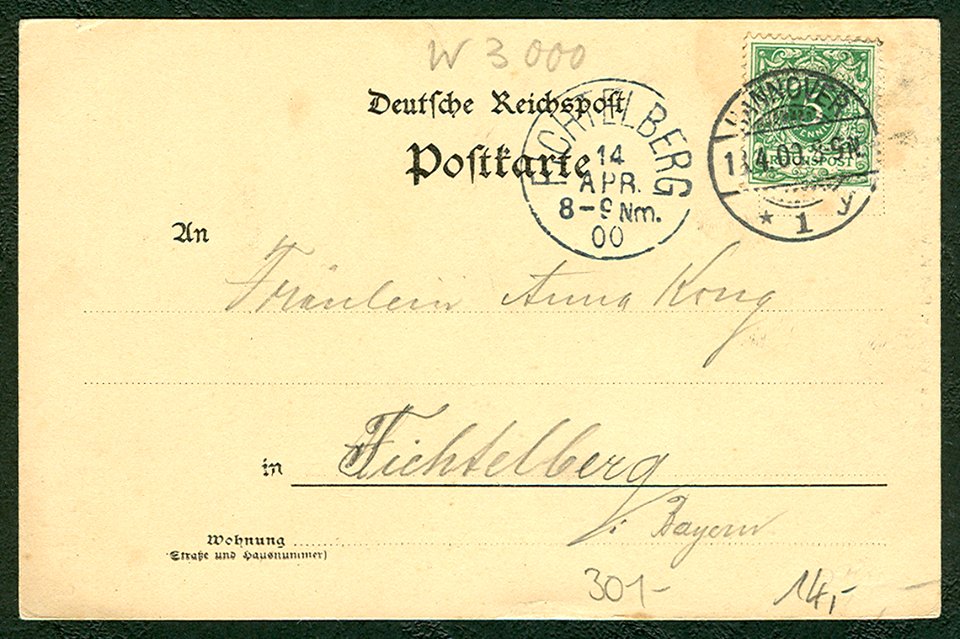 W 3000
Deutsche Reichspost
Postkarte
FICHTELBERG
14
APR.
8-9 Nm.
00
HANNOVER
4.00.8-9N.
* 1 y
5
PFENNIG
REICHSPOST
An
Fräulein Anna
in Fichtelberg
i. Bayern
Wohnung
(Straße und Hausnummer)
301-
14,-